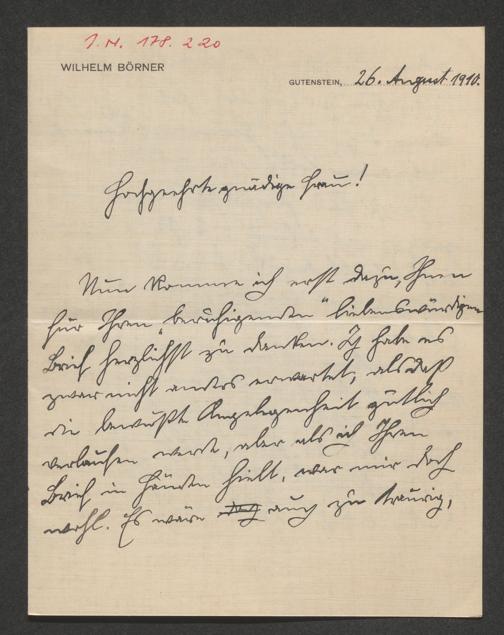 I.N. 178.220
WILHELM BÖRNER
GUTENSTEIN, 26. August 1910.
Hochgeehrte gnädige Frau!
Nun komme ich erst dazu, Ihnen
für Ihren „beruhigenden" liebenswürdigen
Brief herzlichst zu danken. Ich habe es
zwar nicht anders erwartet, als daß
die bewußte Angelegenheit gütlich
verlaufen werde, aber als ich Ihren
Brief in Händen hielt, war mir doch
wohl. Es wäre auch zu traurig,